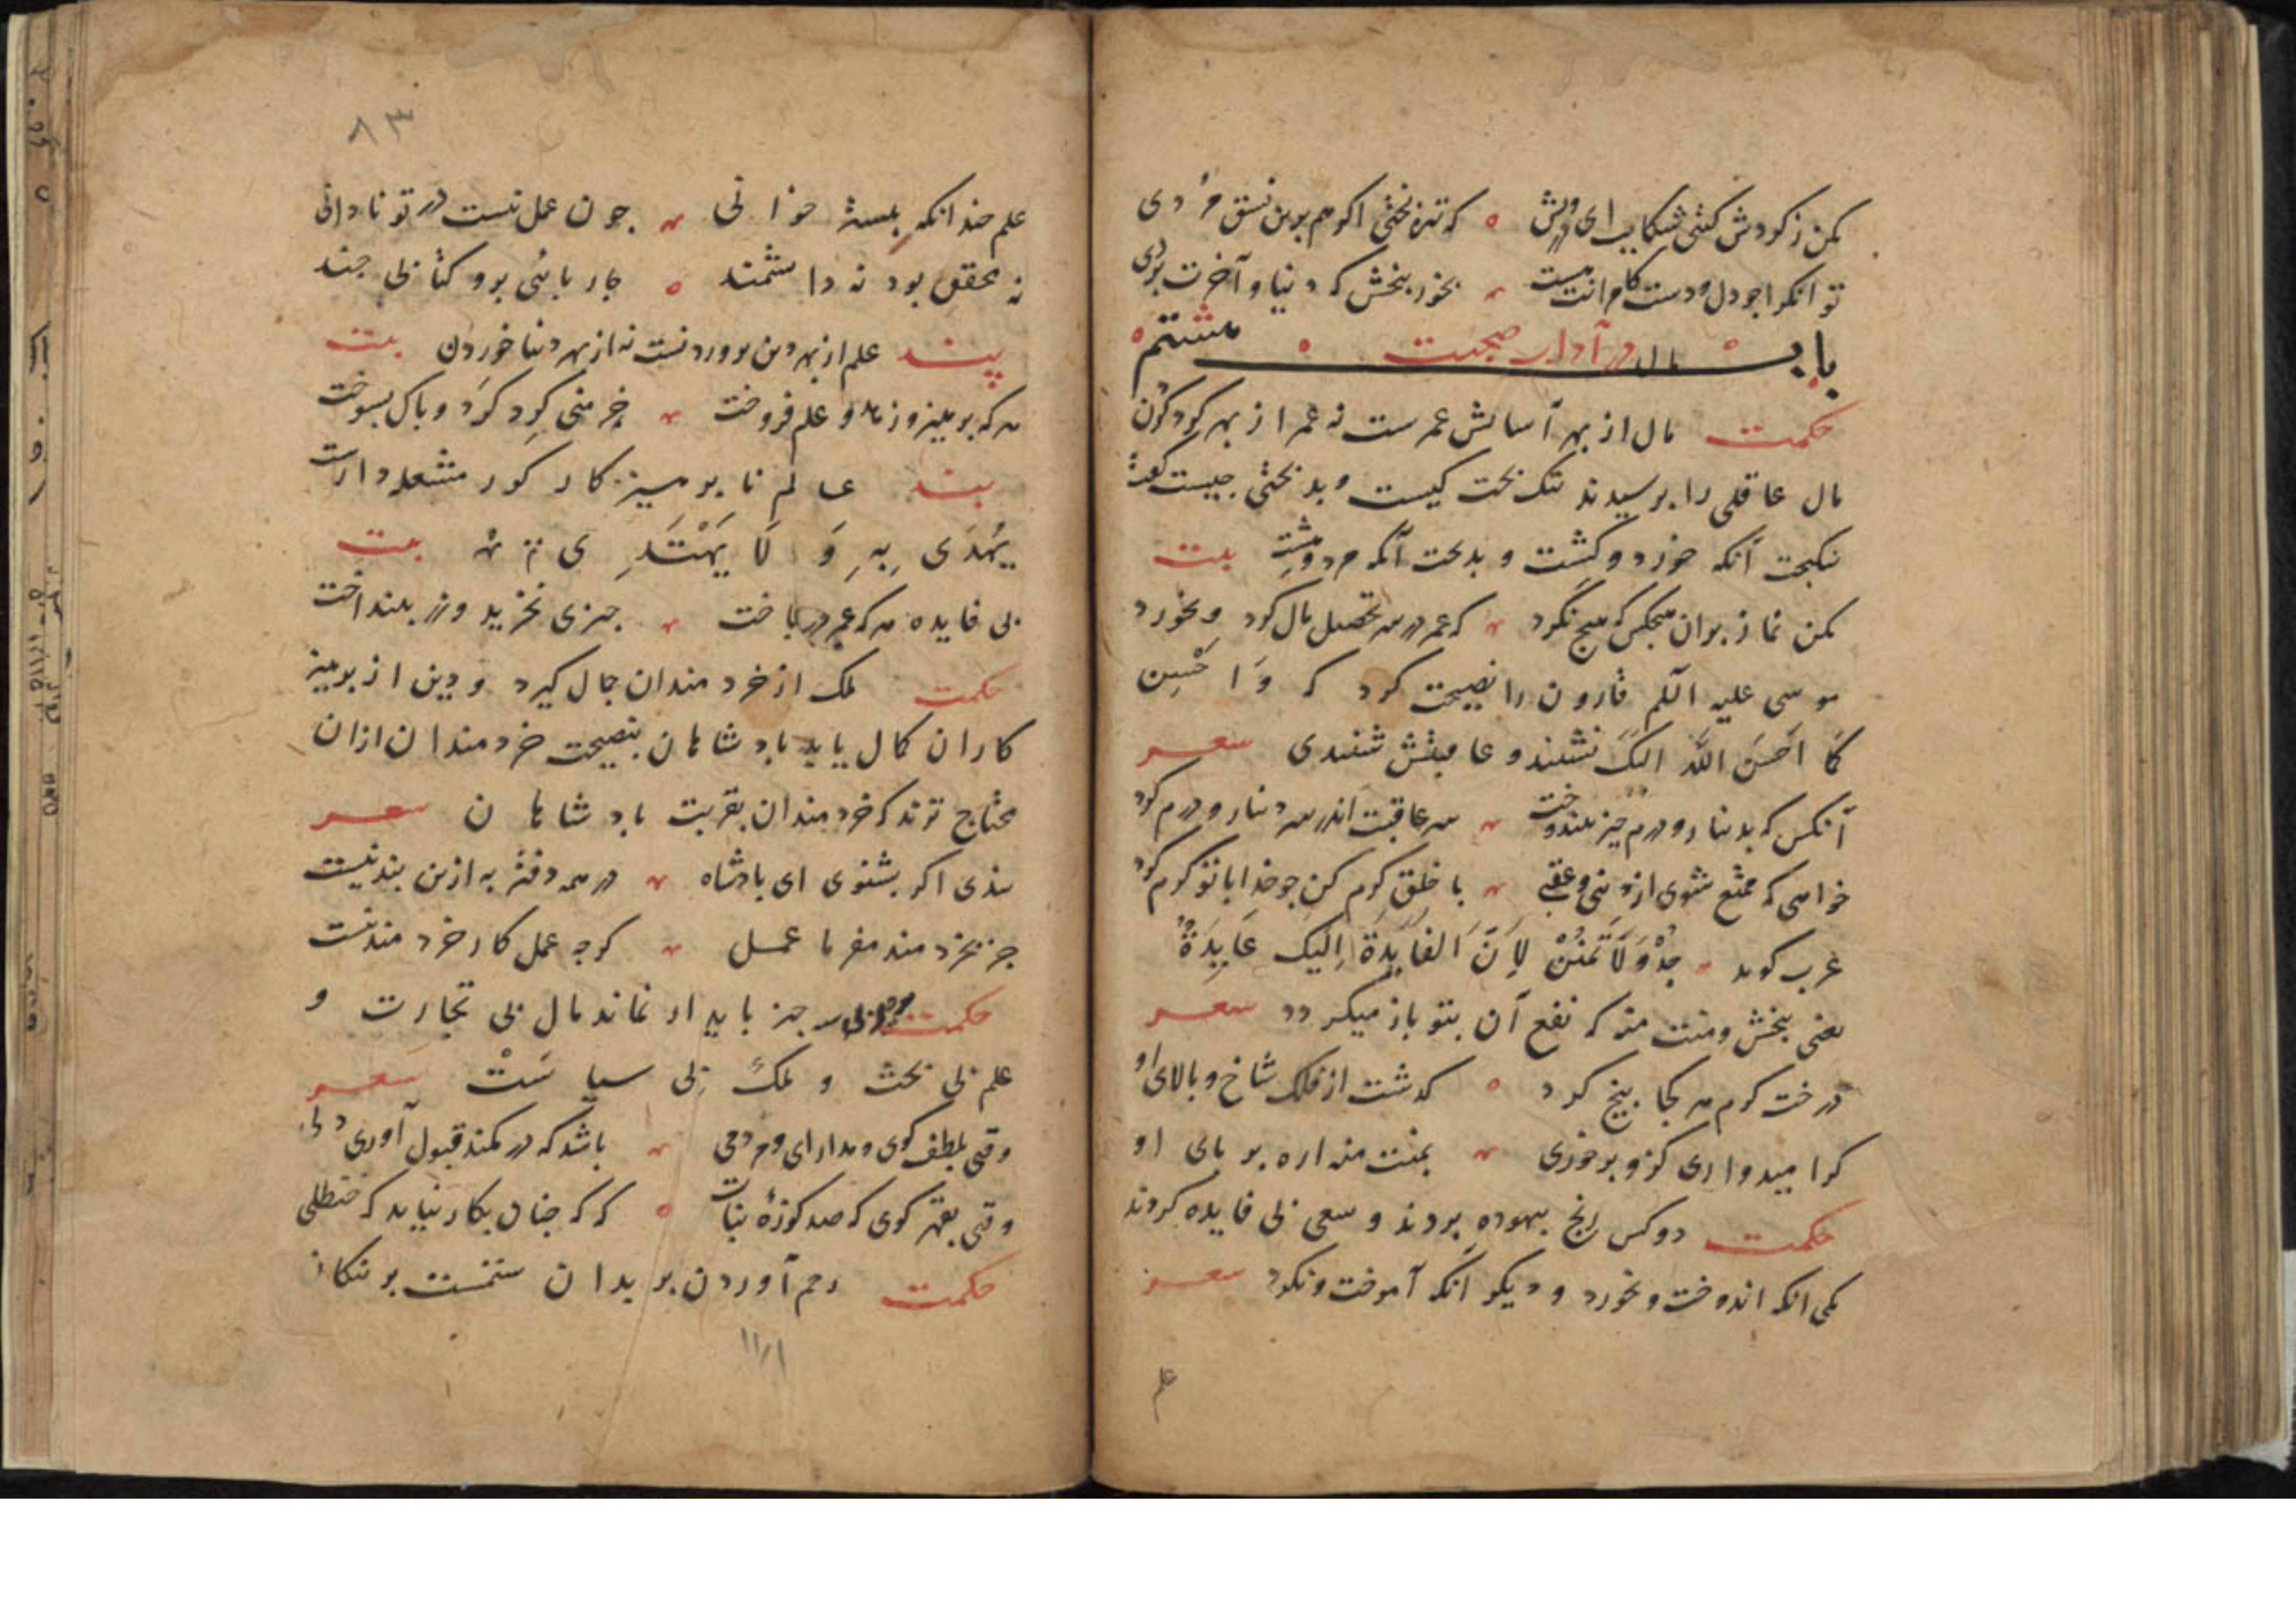 مکن ز کردش کیتی شکایت ای درویش که تیره بختی اکر هم برین نسق مردی
توانکرا چو دل و دست کامرانت هست بخور ببخش که دنیا و آخرت بردی
باب هشتم در آداب صحبت
حکمت مال از بهر آسایش عمرست نه عمر از بهر کرد کردن
مال عاقلی را برسیدند نیک بخت کیست و بدبختی جیست کفت
نیکبخت آنکه خورد و کشت و بدبخت آنکه مرد و هشت بیت
مکن نماز بران هیجکس که هیج نکرد که عمر در سر تحصیل مال کرد و نخورد
موسی علیه السلم قارون را نصیحت کرد که وَاَحْسِن
کَمَا اَحْسَنَ اللّٰهُ الیکَ نشنید و عاقبتش شنیدی شعر
آنکس که بدینار و درم خیر نیندوخت سر عاقبت اندر سر دینار و درم کرد
خواهی که ممتع شوی از دنیی و عقبی با خلق کرم کن جو خدا با تو کرم کرد
عرب کوید جُدْ وَلَا تَمْنُنْ لِاَنَّ الفَایِدَةَ اِلَیکَ عَایِدَةٌ
یعنی ببخش و منت منه که نفع آن بتو باز میکردد شعر
درخت کرم هر کجا بیخ کرد کذشت از فلک شاخ و بالای او
کر امیدواری کزو برخوری بمنت منه اره بر بای او
حکمت دو کس رنج بیهوده بردند و سعی بی فایده کردند
یکی انکه اندوخت و نخورد و دیکر انکه آموخت و نکرد شعر
علم
۸۳
علم جندانکه بیشتر خوانی جون عمل نیست در تو نادانی
نه محقق بود نه دانشمند جاربائی برو کتابی جند
پند علم از بهر دین بروردنست نه از بهر دنیا خوردن بیت
هر که برهیز و زهد و علم فروخت خرمنی کرد کرد و باک بسوخت
پند عالم نابرهیزکار کور مشعله دارست
یُهْدَی بِهِ وَ لَا یَهْتَدِی بیت
بی فایده هر که عمر در باخت جیزی نخرید و زر بینداخت
حکمت ملک از خردمندان جمال کیرد و دین از برهیز
کاران کمال یابد بادشاهان بنصیحت خردمندان ازان
محتاج ترند که خردمندان بقربت بادشاهان شعر
بندی اکر بشنوی ای بادشاه در همه دفتر به ازین بند نیست
جز بخردمند مفرما عمل کرجه عمل کار خردمند نیست
حکمت سه جیز بایدار نماند مال بی تجارت و
علم بی بحث و ملک بی سیاست شعر
وقتی بلطف کوی و مدارا و مردمی باشد که در کمند قبول آوری دلی
وقتی بقهر کوی که صد کوزهٔ نبات که که جنان بکار نیاید که حنظلی
حکمت رحم آوردن بر بدان ستمست بر نیکان